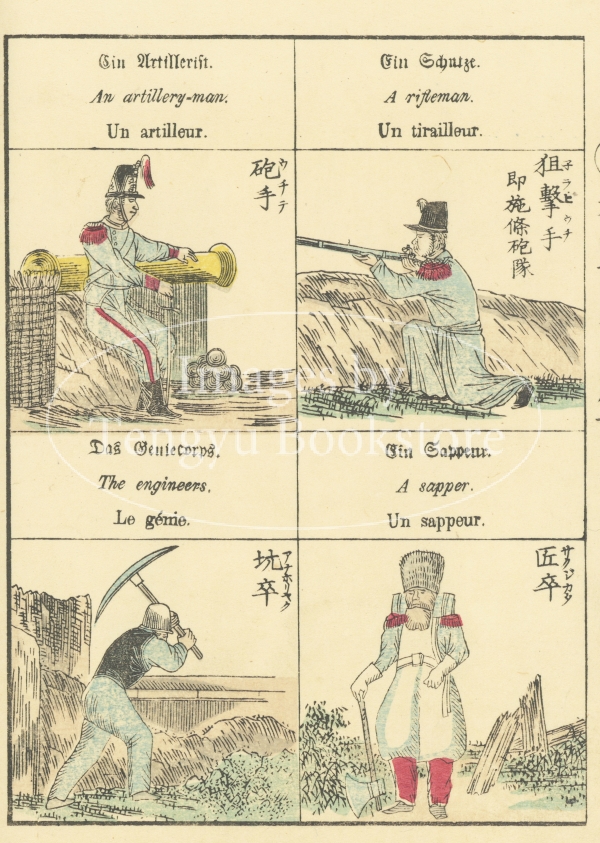 Ein Artillerist.
An artillery-man.
Un artilleur.
Ein Schutze.
A rifleman.
Un tirailleur.
砲手
ウチテ
狙撃手
子ラヒウチ
即施條砲隊
Das Geniecorps.
The engineers.
Le génie.
Ein Sappeur.
A sapper.
Un sappeur.
坑卒
アナホリヤク
匠卒
サクジカタ
Images by
Tengyu Bookstore